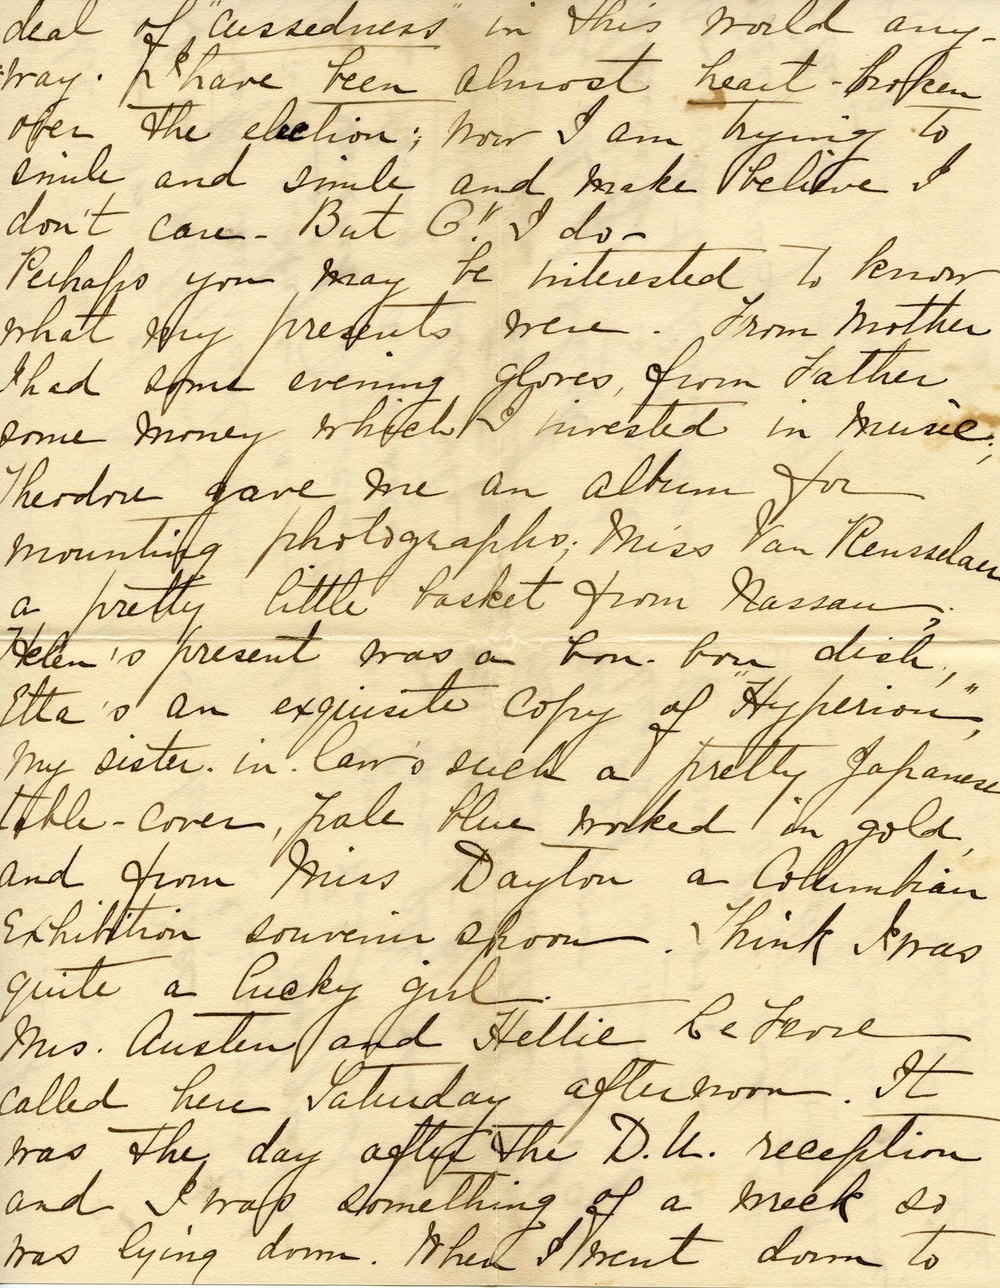 deal of "cussedness" in this world any-
way. I have been almost heart-broken
over the election; now I am trying to
smile and smile and make believe I
don't care - But C." I do -
Perhaps you may be interested to know
what my presents were. From Mother
I had some evening gloves, from Father
some money which I invested in music;
Theodore gave me an album for
mounting photographs; Miss Van Rensselaer
a pretty little basket from Nassau;
Helen's present was a bon-bon dish,
Etta's an exquisite copy of "Hyperion",
my sister-in-law's such a pretty Japanese
table-cover, pale blue worked in gold,
and from Miss Dayton a Columbian
Exhibition souvenir spoon. Think I was
quite a lucky girl.
Mrs. Austen and Hettie Le Fevre
called here Saturday afternoon. It
was the day after the D.U. reception
and I was something of a wreck so
was lying down. When I went down to